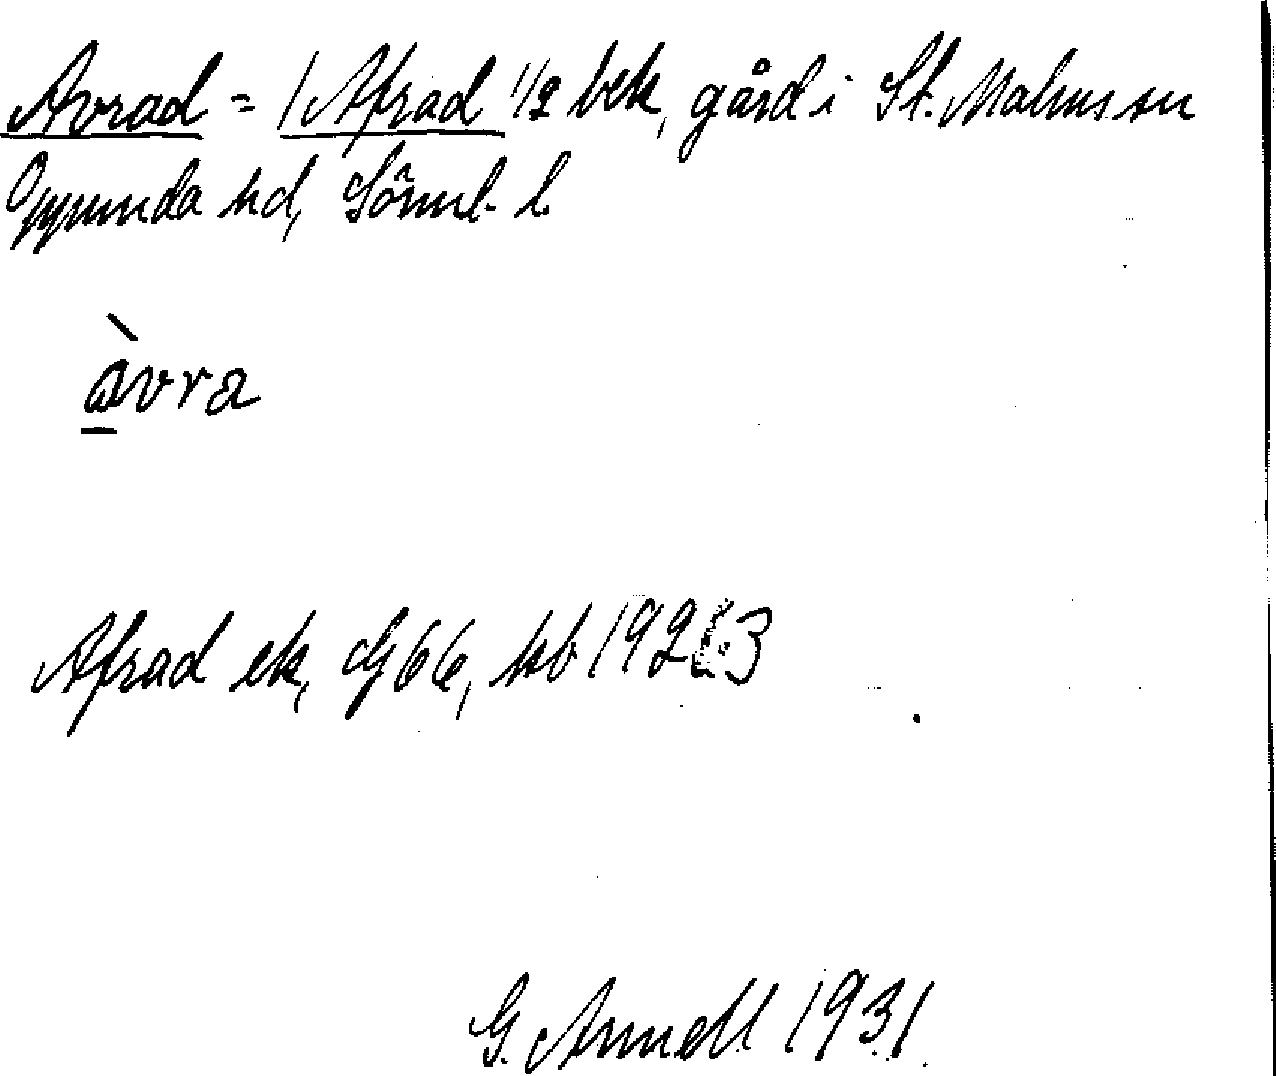 Avrad = 1 Afrad 1/2 bek, gård i St. Malms sn
Oppunda hd, Sörml. l.
àvra
Afrad ek, G 66, kb 1923
G. Arnell 1931.